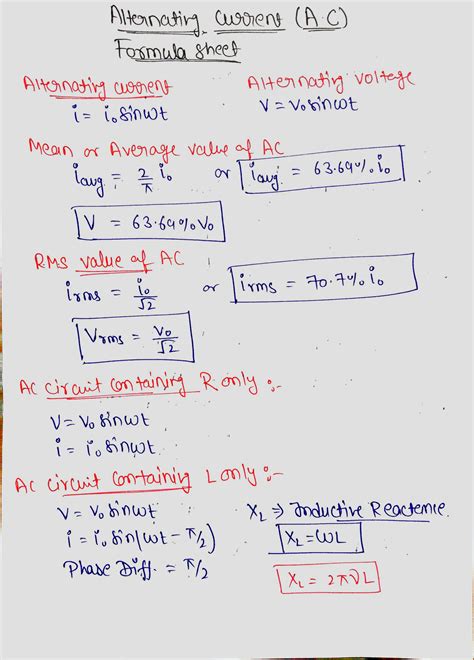 Alternating Current (A.C)
Formula Sheet
Alternating current
i = i₀ sinωt
Alternating voltage
V = V₀ sinωt
Mean or Average value of AC
i_avg = 2/π i₀ or i_avg = 63.69% i₀
V = 63.69% V₀
RMS value of AC
i_rms = i₀/√2 or i_rms = 70.7% i₀
V_rms = V₀/√2
AC circuit containing R only :-
V = V₀ sinωt
i = i₀ sinωt
AC circuit containing L only :-
V = V₀ sinωt
i = i₀ sin(ωt - π/2)
Phase Diff. = π/2
X_L ⇒ Inductive Reactence
X_L = ωL
X_L = 2πνL